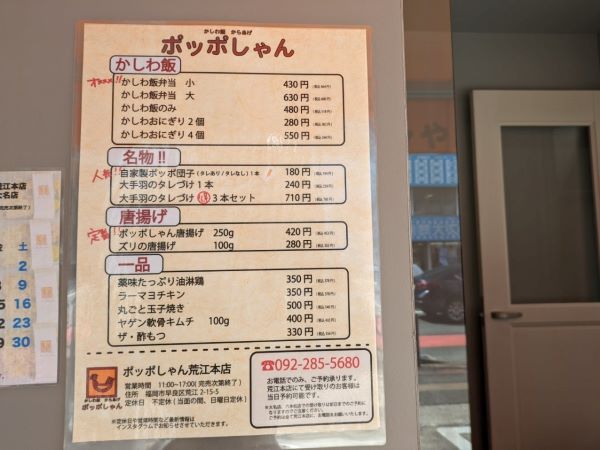 かしわ飯 からあげ
ポッポしゃん
かしわ飯
オススメ!!
かしわ飯弁当 小 430円
かしわ飯弁当 大 630円
かしわ飯のみ 480円
かしわおにぎり2個 280円
かしわおにぎり4個 550円
名物!!
人気!!
自家製ポッポ団子(タレあり/タレなし)1本 180円
大手羽のタレづけ1本 240円
大手羽のタレづけ 3本セット 710円
唐揚げ
定番!!
ポッポしゃん唐揚げ 250g 420円
ズリの唐揚げ 100g 280円
一品
薬味たっぷり油淋鶏 350円
ラーマヨチキン 350円
丸ごと玉子焼き 500円
ヤゲン軟骨キムチ 100g 400円
ザ・酢もつ 330円
かしわ飯 からあげ
ポッポしゃん
ポッポしゃん荒江本店
営業時間 11:00~17:00(完売次第終了)
住所 福岡市早良区荒江2-15-5
定休日 不定休(当面の間、日曜日定休)
※定休日や営業時間など最新情報は
インスタグラムでお知らせさせていただきます。
☎092-285-5680
お電話でのみ、ご予約承ります。
荒江本店にて受け取りのお客様は
当日予約可能です。
荒江本店
大名店
(完売次第終了)
金 土
2
8 9
15 16
22 23
29 30